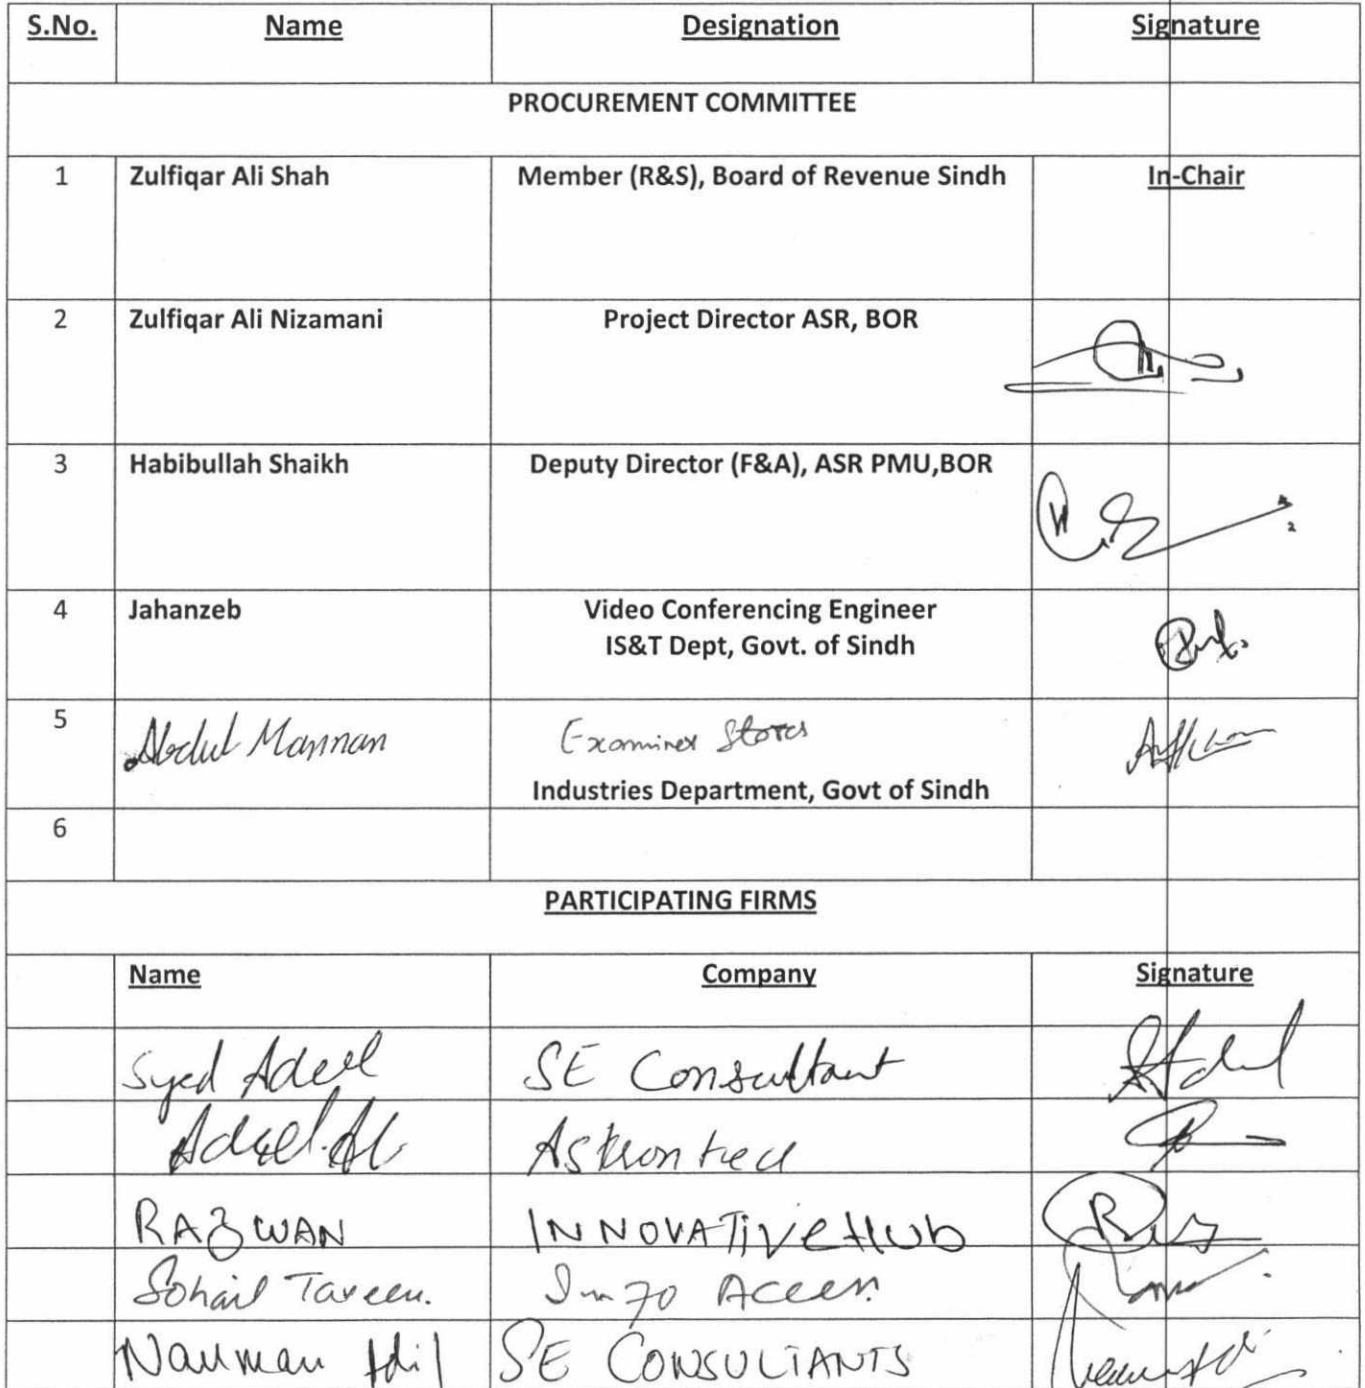 S.No. Name Designation Signature
PROCUREMENT COMMITTEE
1 Zulfiqar Ali Shah Member (R&S), Board of Revenue Sindh In-Chair
2 Zulfiqar Ali Nizamani Project Director ASR, BOR
3 Habibullah Shaikh Deputy Director (F&A), ASR PMU,BOR
4 Jahanzeb Video Conferencing Engineer
IS&T Dept, Govt. of Sindh
5 Abdul Mannan Examiner Stores
Industries Department, Govt of Sindh
6
PARTICIPATING FIRMS
Name Company Signature
Syed Adeel SE Consultant
Adeel
RAZWAN INNOVATIVE HUB
Sohail Tareen.
Nauman Adil SE CONSULTANTS